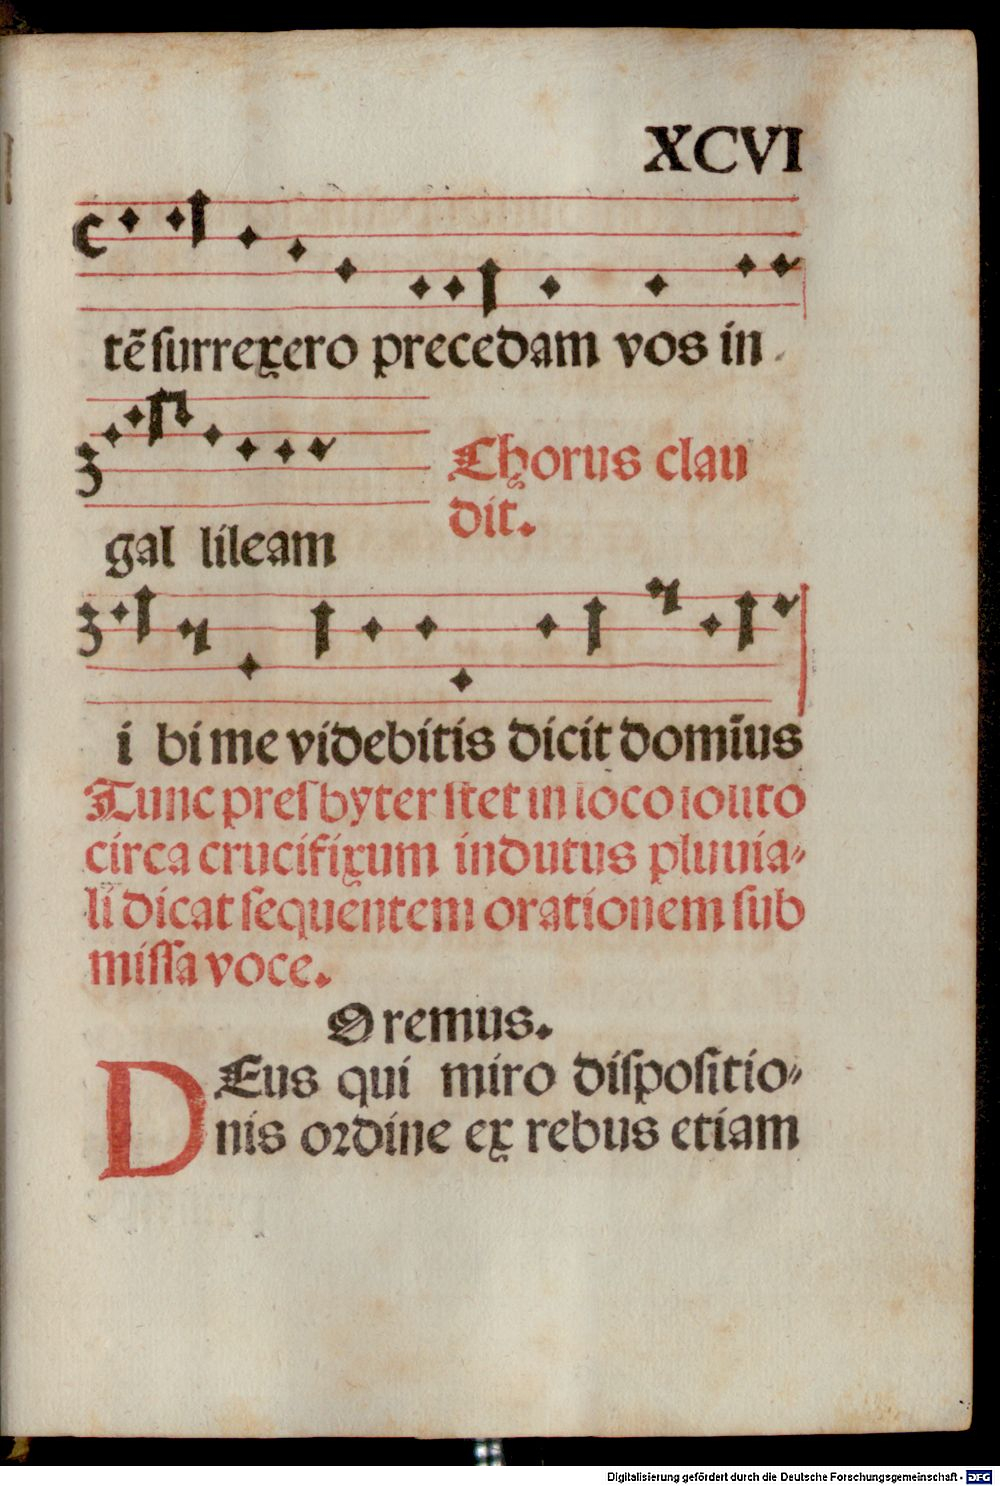 XCVI
tẽ surrexero precedam vos in
gal lileam
Chorus clau
dit.
i bi me videbitis dicit domīus
Tunc presbyter stet in loco solito
circa crucifixum indutus pluuia-
li dicat sequentem orationem sub
missa voce.
Oremus.
DEus qui miro dispositio-
nis ordine ex rebus etiam
Digitalisierung gefördert durch die Deutsche Forschungsgemeinschaft - DFG